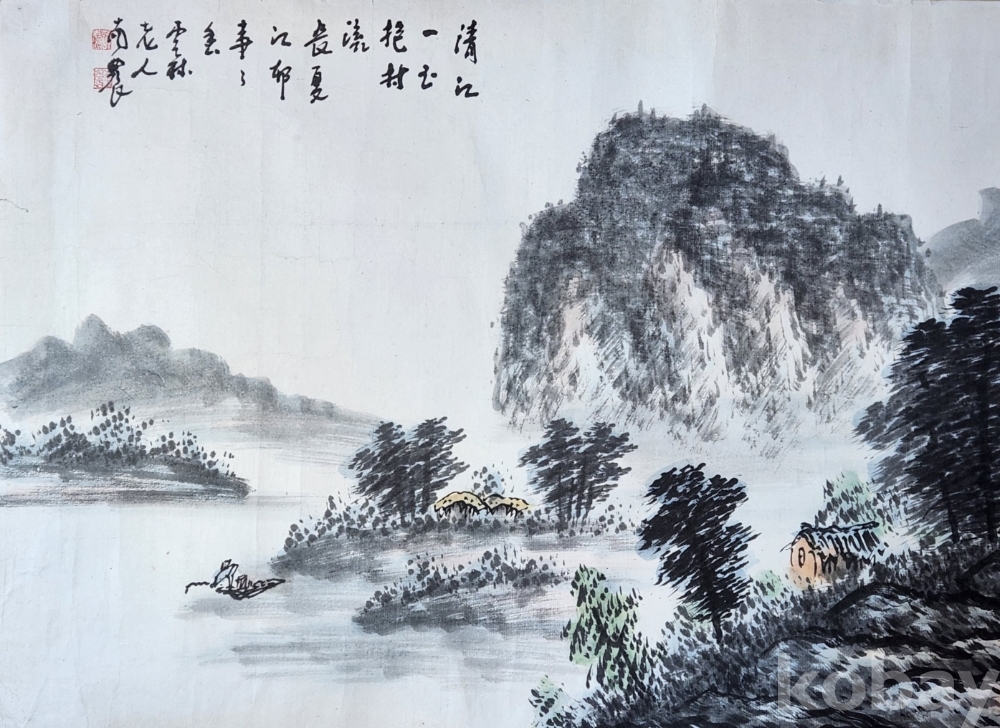 清江
一曲
抱村
流
長夏
江邨
事〻
幽
雲林
老人
南農
kobay